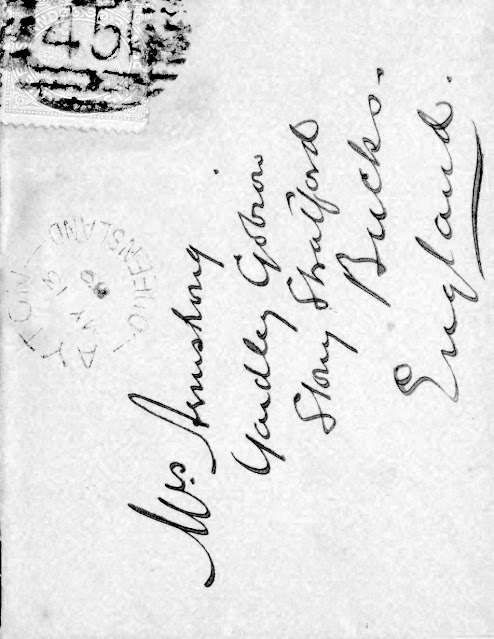 45
AYTON
MY 19
90
QUEENSLAND
Mrs Armstrong
Yardley Gobion
Stony Stratford
Bucks.
England.